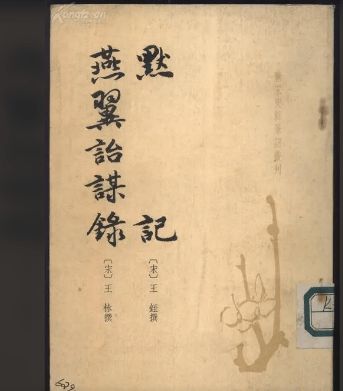 唐宋史料筆記叢刊
默記
〔宋〕王銍撰
燕翼詒謀錄
〔宋〕王栐撰